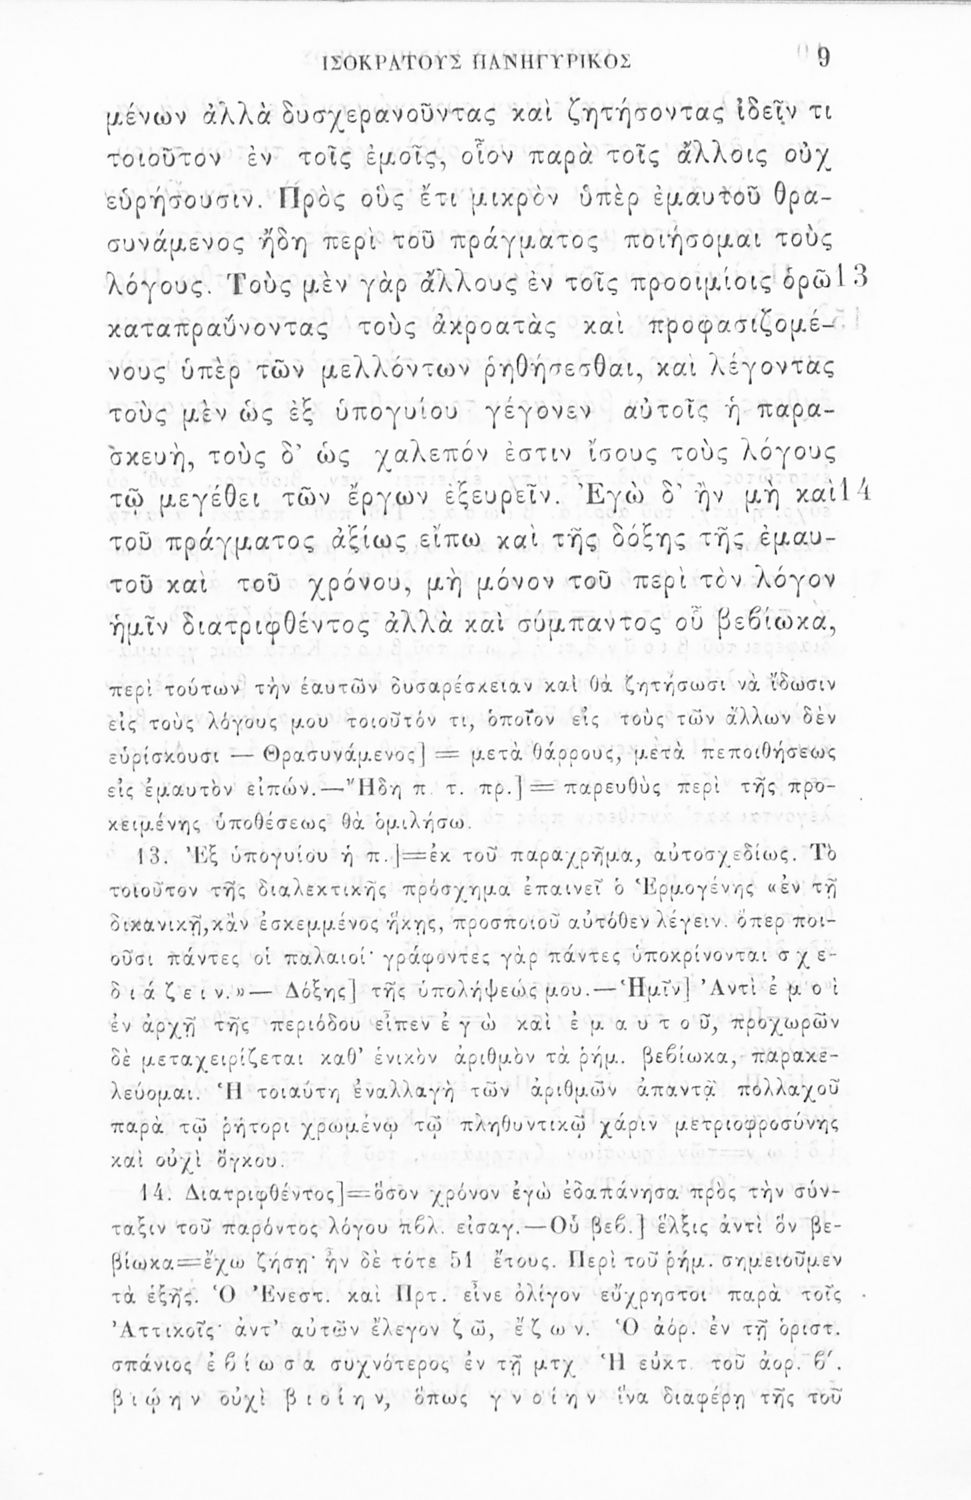 ΙΣΟΚΡΑΤΟΥΣ ΠΑΝΗΓΥΡΙΚΟΣ 9
μένων ἀλλὰ δυσχερανοῦντας καὶ ζητήσοντας ἰδεῖν τι
τοιοῦτον ἐν τοῖς ἐμοῖς, οἷον παρὰ τοῖς ἄλλοις οὐχ
εὑρήσουσιν. Πρὸς οὓς ἔτι μικρὸν ὑπὲρ ἐμαυτοῦ θρα-
συνάμενος ἤδη περὶ τοῦ πράγματος ποιήσομαι τοὺς
λόγους. Τοὺς μὲν γὰρ ἄλλους ἐν τοῖς προοιμίοις ὁρῶ 13
καταπραΰνοντας τοὺς ἀκροατὰς καὶ προφασιζομέ-
νους ὑπὲρ τῶν μελλόντων ῥηθήσεσθαι, καὶ λέγοντας
τοὺς μὲν ὡς ἐξ ὑπογυίου γέγονεν αὐτοῖς ἡ παρα-
σκευὴ, τοὺς δ’ ὡς χαλεπόν ἐστιν ἴσους τοὺς λόγους
τῷ μεγέθει τῶν ἔργων ἐξευρεῖν. Ἐγὼ δ’ ἢν μὴ καὶ 14
τοῦ πράγματος ἀξίως εἴπω καὶ τῆς δόξης τῆς ἐμαυ-
τοῦ καὶ τοῦ χρόνου, μὴ μόνον τοῦ περὶ τὸν λόγον
ἡμῖν διατριφθέντος ἀλλὰ καὶ σύμπαντος οὗ βεβίωκα,
περὶ τούτων τὴν ἑαυτῶν δυσαρέσκειαν καὶ θὰ ζητήσωσι νὰ ἴδωσιν
εἰς τοὺς λόγους μου τοιοῦτόν τι, ὁποῖον εἰς τοὺς τῶν ἄλλων δὲν
εὑρίσκουσι — Θρασυνάμενος] = μετὰ θάρρους, μετὰ πεποιθήσεως
εἰς ἐμαυτὸν εἰπών.—Ἤδη π. τ. πρ.] = παρευθὺς περὶ τῆς προ-
κειμένης ὑποθέσεως θὰ ὁμιλήσω.
13. Ἐξ ὑπογυίου ἡ π.]=ἐκ τοῦ παραχρῆμα, αὐτοσχεδίως. Τὸ
τοιοῦτον τῆς διαλεκτικῆς πρόσχημα ἐπαινεῖ ὁ Ἑρμογένης «ἐν τῇ
δικανικῇ, κἂν ἐσκεμμένος ἥκῃς, προσποιοῦ αὐτόθεν λέγειν. ὅπερ ποι-
οῦσι πάντες οἱ παλαιοί· γράφοντες γὰρ πάντες ὑποκρίνονται σχε-
διάζειν.»— Δόξης] τῆς ὑπολήψεώς μου.—Ἡμῖν] Ἀντὶ ἐμοὶ
ἐν ἀρχῇ τῆς περιόδου εἶπεν ἐγὼ καὶ ἐμαυτοῦ, προχωρῶν
δὲ μεταχειρίζεται καθ’ ἑνικὸν ἀριθμὸν τὰ ῥήμ. βεβίωκα, παρακε-
λεύομαι. Ἡ τοιαύτη ἐναλλαγὴ τῶν ἀριθμῶν ἀπαντᾷ πολλαχοῦ
παρὰ τῷ ῥήτορι χρωμένῳ τῷ πληθυντικῷ χάριν μετριοφροσύνης
καὶ οὐχὶ ὄγκου.
14. Διατριφθέντος]=ὅσον χρόνον ἐγὼ ἐδαπάνησα πρὸς τὴν σύν-
ταξιν τοῦ παρόντος λόγου πβλ. εἰσαγ.—Οὗ βεβ.] ἕλξις ἀντὶ ὃν βε-
βίωκα=ἔχω ζήσῃ· ἦν δὲ τότε 51 ἔτους. Περὶ τοῦ ῥήμ. σημειοῦμεν
τὰ ἑξῆς. Ὁ Ἐνεστ. καὶ Πρτ. εἶνε ὀλίγον εὔχρηστοι παρὰ τοῖς
Ἀττικοῖς· ἀντ’ αὐτῶν ἔλεγον ζῶ, ἔζων. Ὁ ἀόρ. ἐν τῇ ὁριστ.
σπάνιος ἐβίωσα συχνότερος ἐν τῇ μτχ. Ἡ εὐκτ. τοῦ ἀορ. β′.
βιῴην οὐχὶ βιοίην, ὅπως γνοίην ἵνα διαφέρῃ τῆς τοῦ